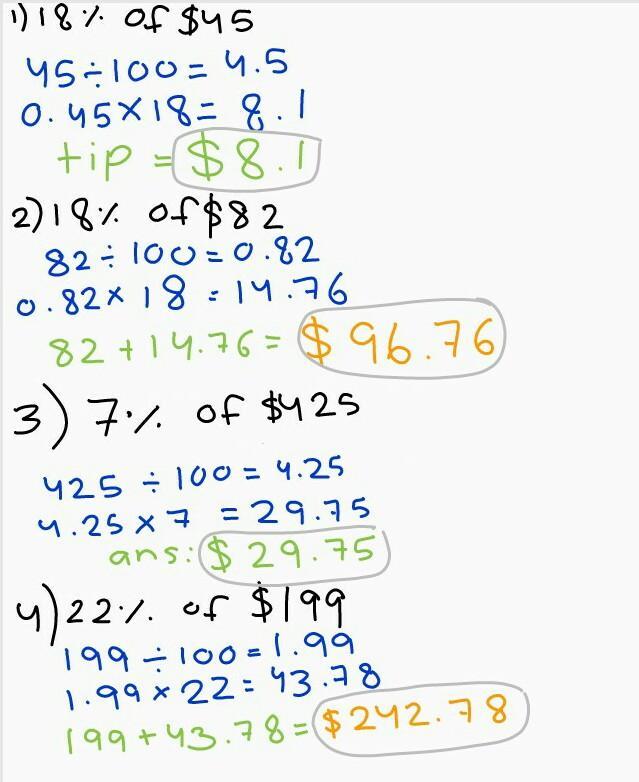 1) 18% of $45
45÷100 = 4.5
0.45×18= 8.1
tip = $8.1
2) 18% of $82
82÷100 = 0.82
0.82×18 = 14.76
82+14.76 = $96.76
3) 7% of $425
425 ÷ 100 = 4.25
4.25 × 7 = 29.75
ans: $29.75
4) 22% of $199
199 ÷ 100 = 1.99
1.99 × 22 = 43.78
199 + 43.78 = $242.78